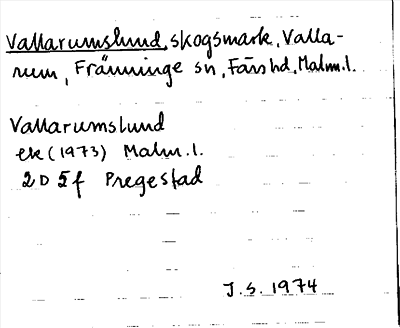 Vallarumslund, skogsmark, Valla-
rum, Fränninge sn, Färs hd, Malm.l.
Vallarumslund
ek (1973) Malm.l.
2D 5f Pregestad
J.S. 1974